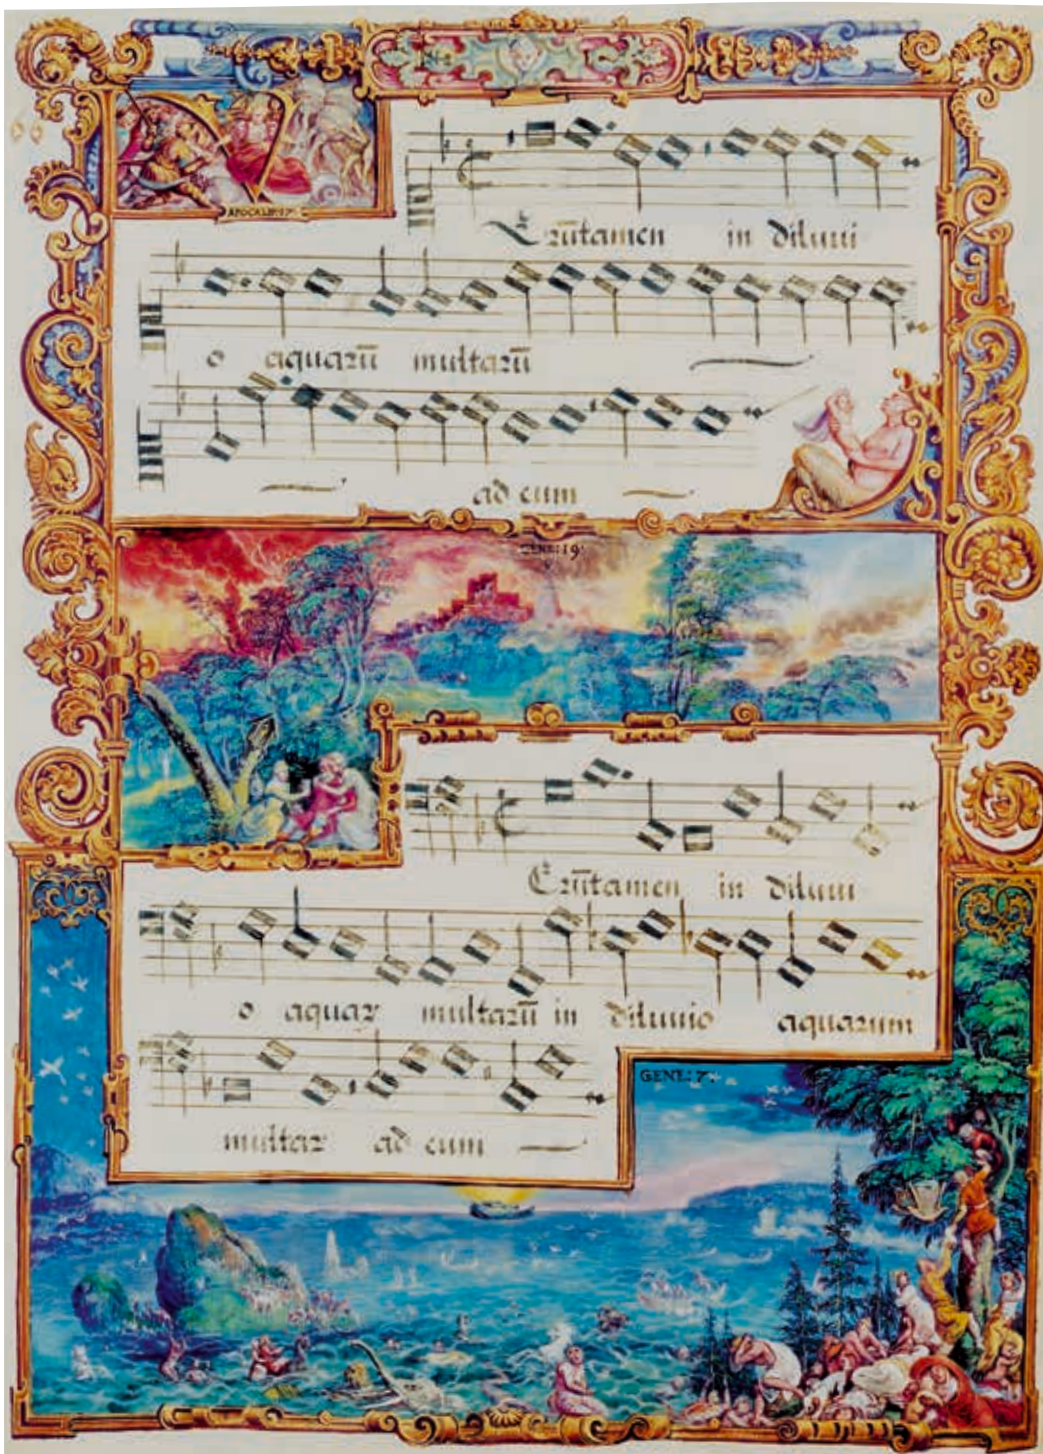 APOCALIP:17.
Erūtamen in diluui
o aquarū multarū
ad eum
GENE: 19.
Erūtamen in diluui
o aquar multarū in diluuio aquarum
multar ad eum
GENE: 7.